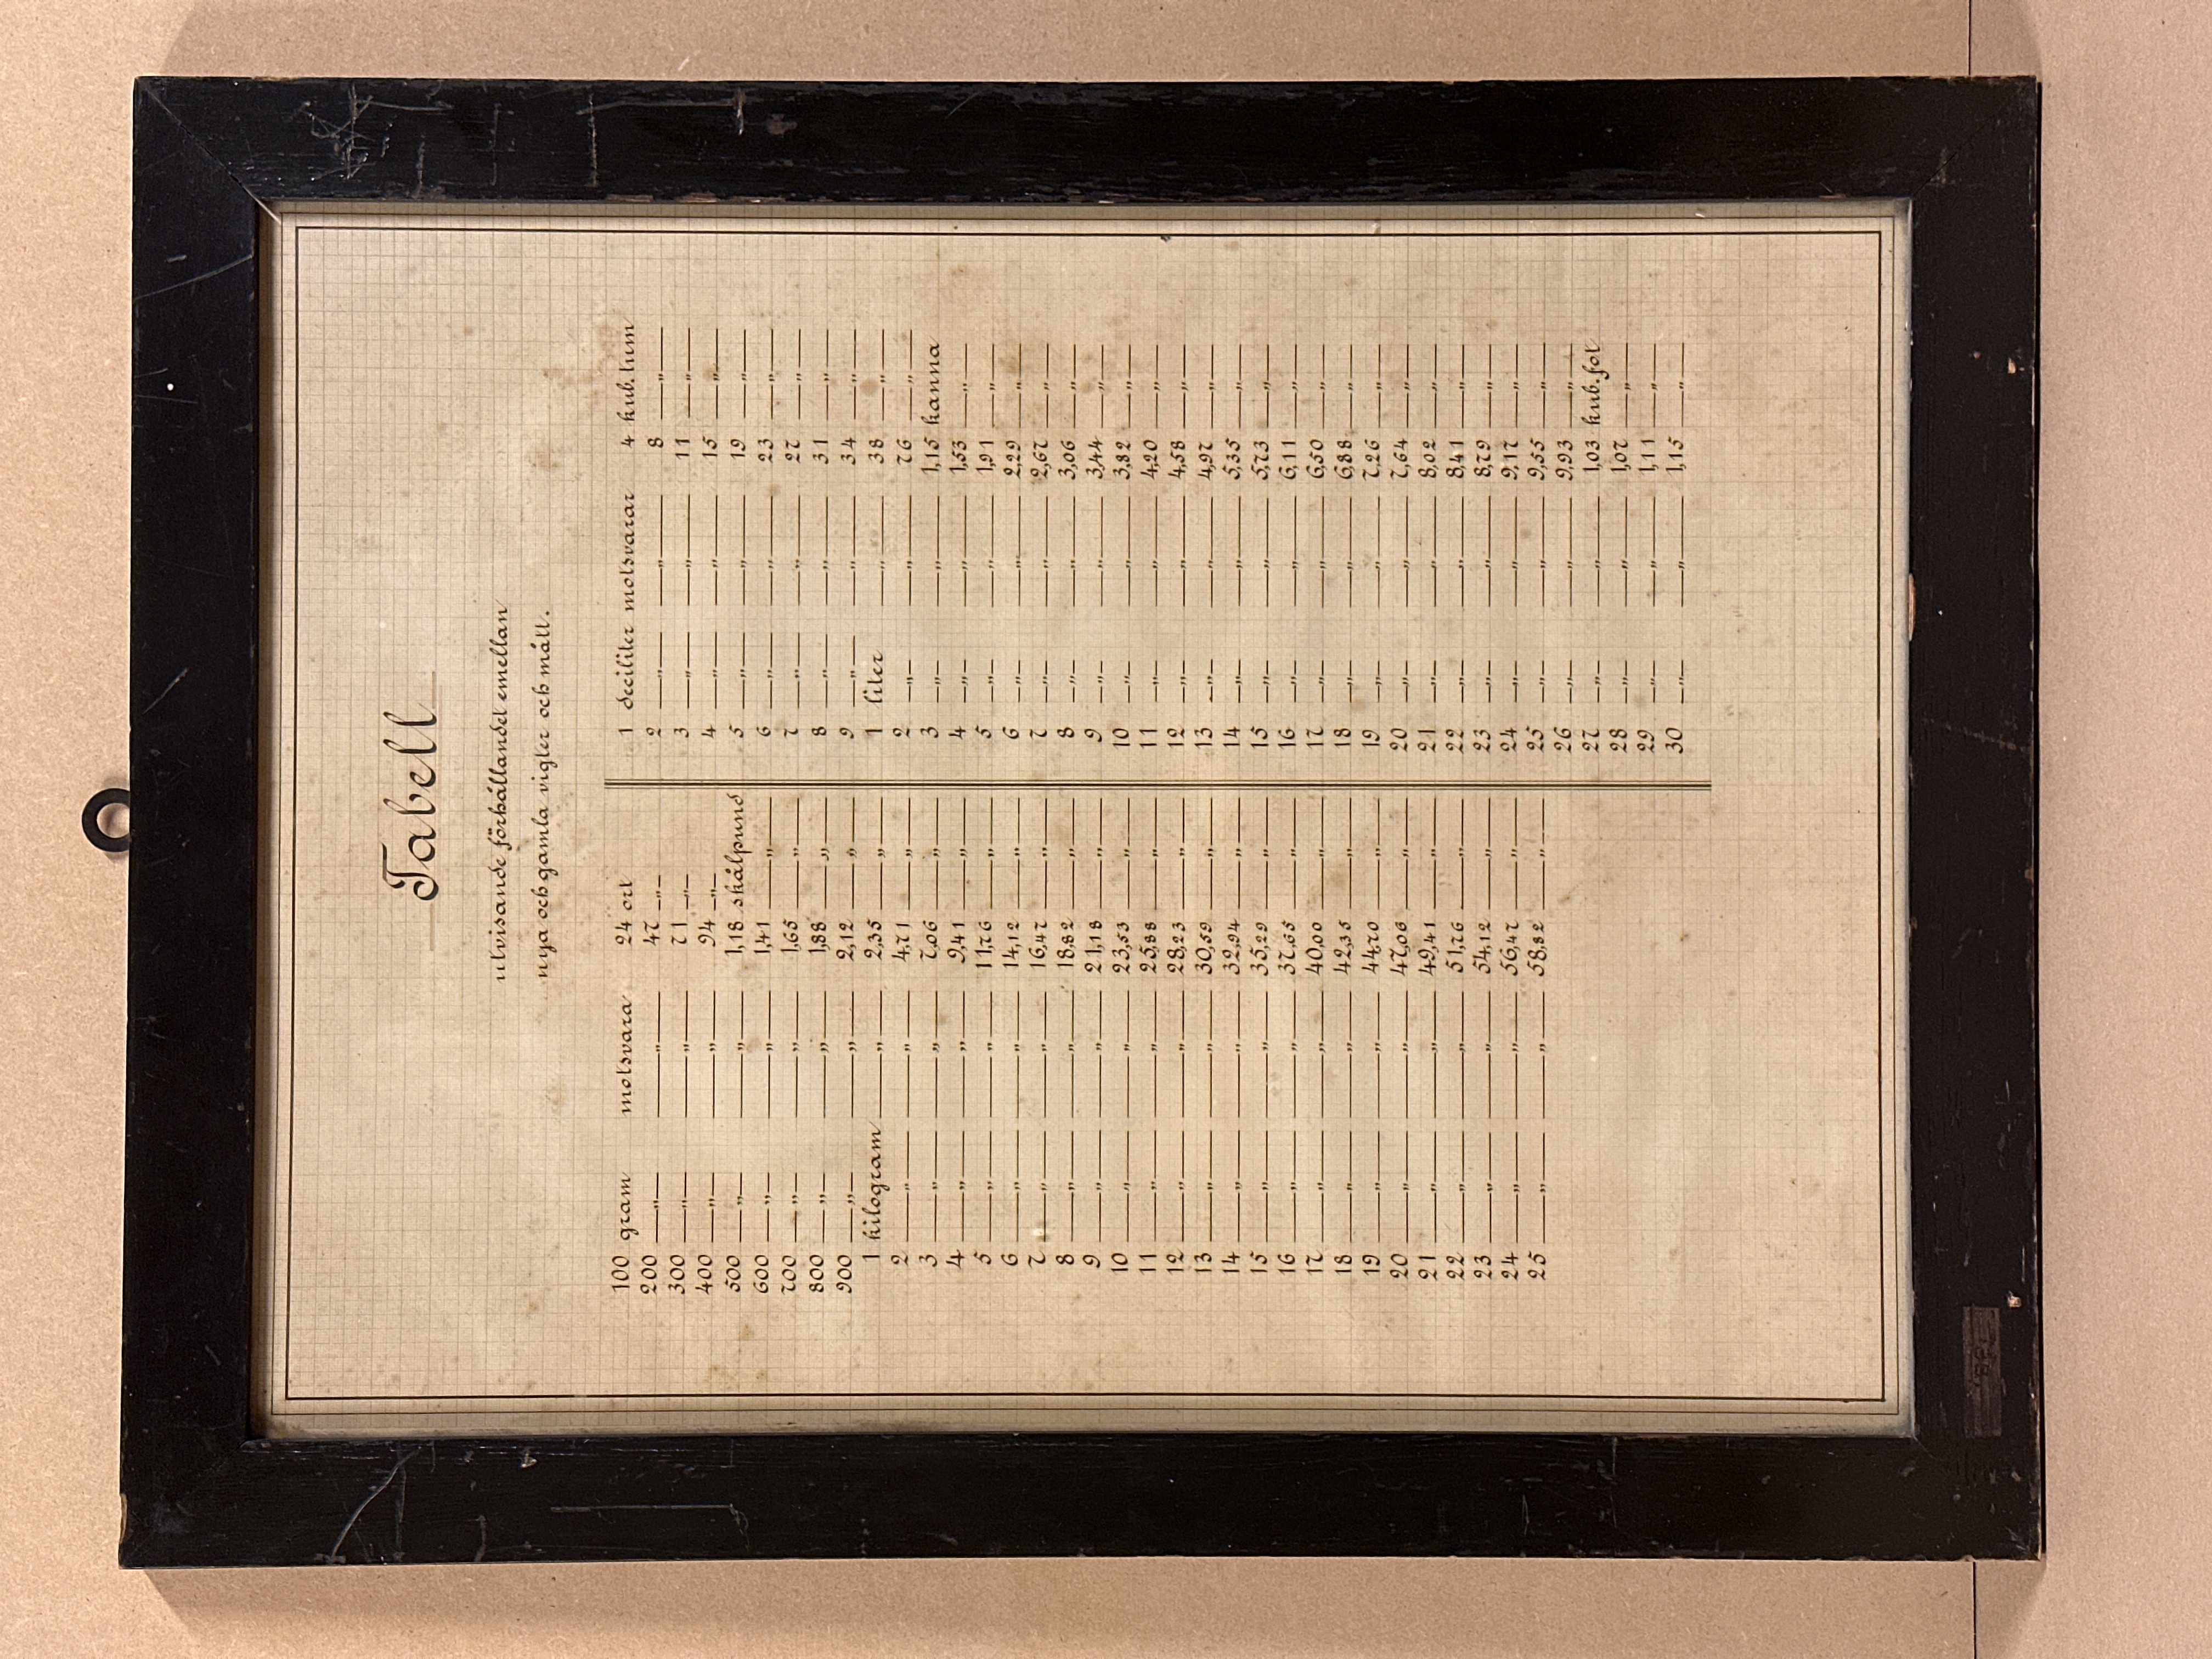 Tabell
utvisande förhållandet emellan
nya och gamla vigter och mått.
100 gram motsvara 24 ort
200 —"— —"— 47 —"—
300 —"— —"— 71 —"—
400 —"— —"— 94 —"—
500 —"— —"— 1,18 skålpund
600 —"— —"— 1,41 —"—
700 —"— —"— 1,65 —"—
800 —"— —"— 1,88 —"—
900 —"— —"— 2,12 —"—
1 kilogram —"— 2,35 —"—
2 —"— —"— 4,71 —"—
3 —"— —"— 7,06 —"—
4 —"— —"— 9,41 —"—
5 —"— —"— 11,76 —"—
6 —"— —"— 14,12 —"—
7 —"— —"— 16,47 —"—
8 —"— —"— 18,82 —"—
9 —"— —"— 21,18 —"—
10 —"— —"— 23,53 —"—
11 —"— —"— 25,88 —"—
12 —"— —"— 28,23 —"—
13 —"— —"— 30,59 —"—
14 —"— —"— 32,94 —"—
15 —"— —"— 35,29 —"—
16 —"— —"— 37,65 —"—
17 —"— —"— 40,00 —"—
18 —"— —"— 42,35 —"—
19 —"— —"— 44,70 —"—
20 —"— —"— 47,06 —"—
21 —"— —"— 49,41 —"—
22 —"— —"— 51,76 —"—
23 —"— —"— 54,12 —"—
24 —"— —"— 56,47 —"—
25 —"— —"— 58,82 —"—
1 deciliter motsvarar 4 kub.tum
2 —"— —"— 8 —"—
3 —"— —"— 11 —"—
4 —"— —"— 15 —"—
5 —"— —"— 19 —"—
6 —"— —"— 23 —"—
7 —"— —"— 27 —"—
8 —"— —"— 31 —"—
9 —"— —"— 34 —"—
1 liter —"— 38 —"—
2 —"— —"— 76 —"—
3 —"— —"— 1,15 kanna
4 —"— —"— 1,53 —"—
5 —"— —"— 1,91 —"—
6 —"— —"— 2,29 —"—
7 —"— —"— 2,67 —"—
8 —"— —"— 3,06 —"—
9 —"— —"— 3,44 —"—
10 —"— —"— 3,82 —"—
11 —"— —"— 4,20 —"—
12 —"— —"— 4,58 —"—
13 —"— —"— 4,97 —"—
14 —"— —"— 5,35 —"—
15 —"— —"— 5,73 —"—
16 —"— —"— 6,11 —"—
17 —"— —"— 6,50 —"—
18 —"— —"— 6,88 —"—
19 —"— —"— 7,26 —"—
20 —"— —"— 7,64 —"—
21 —"— —"— 8,02 —"—
22 —"— —"— 8,41 —"—
23 —"— —"— 8,79 —"—
24 —"— —"— 9,17 —"—
25 —"— —"— 9,55 —"—
26 —"— —"— 9,93 —"—
27 —"— —"— 1,03 kub.fot
28 —"— —"— 1,07 —"—
29 —"— —"— 1,11 —"—
30 —"— —"— 1,15 —"—